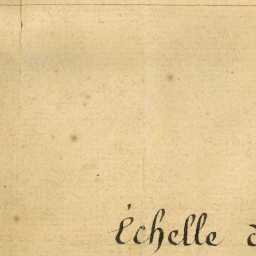 Échelle